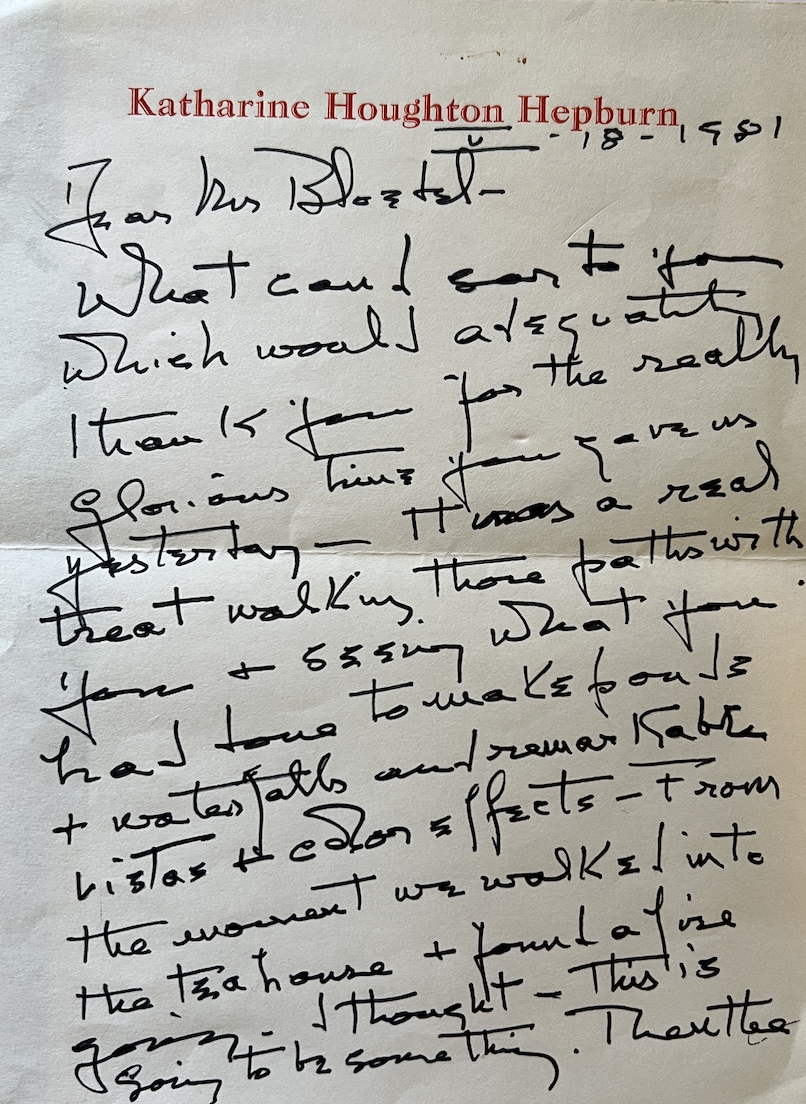 Katharine Houghton Hepburn
V - 18 - 1981
Dear Mrs Bloedel -
What could I say to you
which would adequately
thank you for the really
glorious time you gave us
yesterday - It was a real
treat walking those paths with
you + seeing what you
had done to make ponds
+ waterfalls and remarkable
vistas + color effects - From
the moment we walked into
the tea house + found a fire
going - I thought - This is
going to be something. Then the